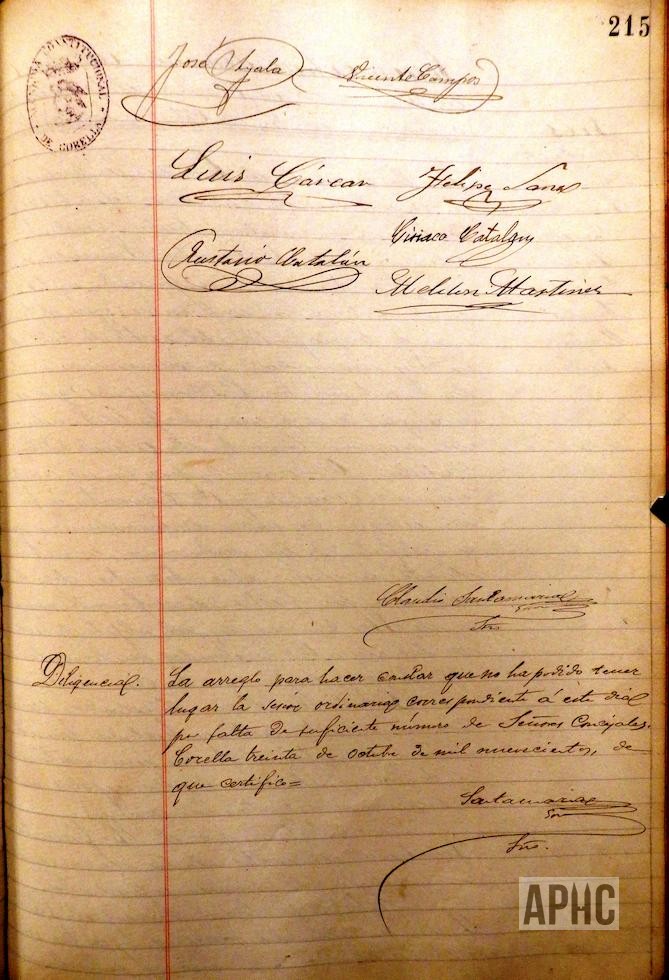 215
ALCALDIA CONSTITUCIONAL
DE CORELLA
José Ayala
Vicente Campos
Luis Cárcar
Felipe Sanz
Ciriaco Catalán
Eustasio Catalán
Meliton Martinez
Claudio Santamaria
Srio
Diligencia.
La arreglo para hacer constar que no ha podido tener
lugar la sesión ordinaria correspondiente á este dia
por falta de suficiente número de Señores Concejales.
Corella treinta de Octubre de mil novecientos, de
que certifico=
Santamaria
Srio.
APHC